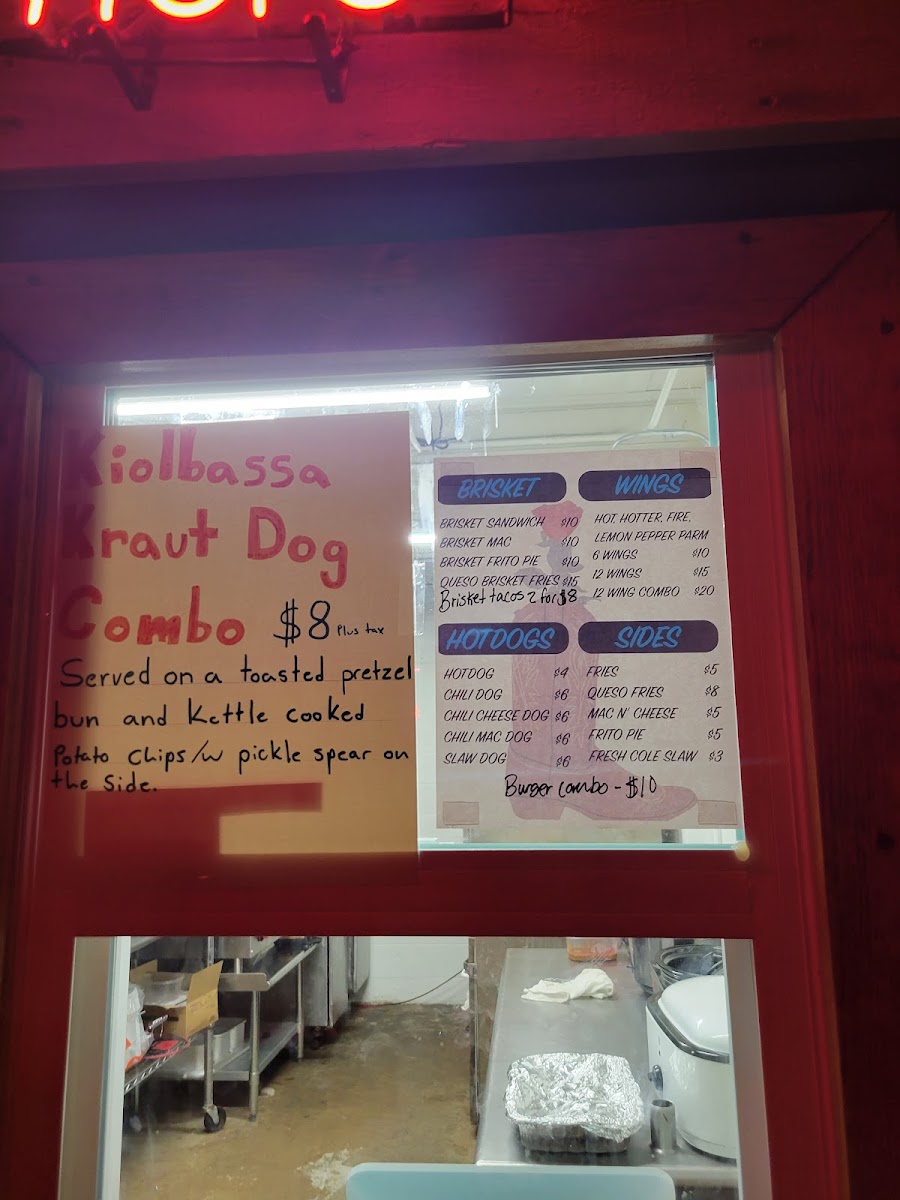 Kiolbassa
Kraut Dog
Combo $8 Plus tax
Served on a toasted pretzel
bun and Kettle cooked
Potato Chips /w pickle spear on
the side.
BRISKET
BRISKET SANDWICH $10
BRISKET MAC $10
BRISKET FRITO PIE $10
QUESO BRISKET FRIES $15
Brisket tacos 2 for $8
WINGS
HOT, HOTTER, FIRE,
LEMON PEPPER PARM
6 WINGS $10
12 WINGS $15
12 WING COMBO $20
HOTDOGS
HOTDOG $4
CHILI DOG $6
CHILI CHEESE DOG $6
CHILI MAC DOG $6
SLAW DOG $6
SIDES
FRIES $5
QUESO FRIES $8
MAC N' CHEESE $5
FRITO PIE $5
FRESH COLE SLAW $3
Burger combo - $10